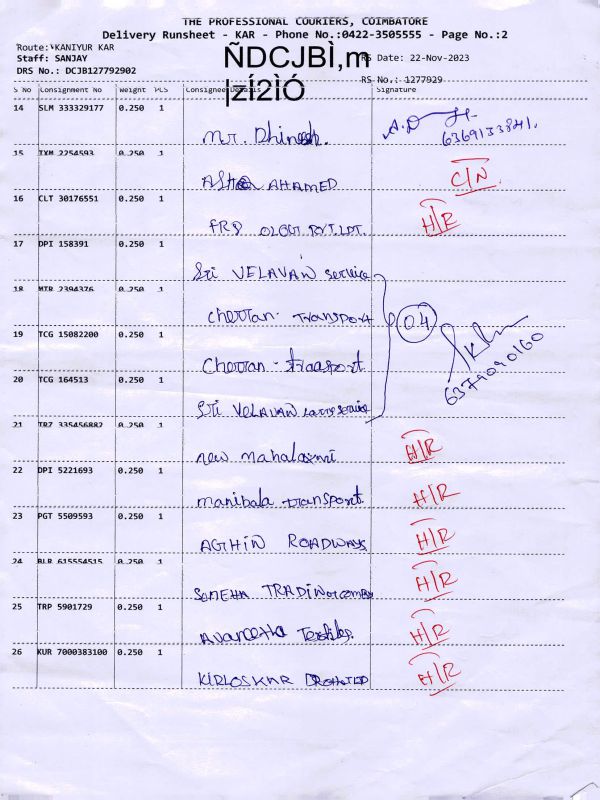 THE PROFESSIONAL COURIERS, COIMBATORE
Delivery Runsheet - KAR - Phone No.:0422-3505555 - Page No.:2
Route: KANIYUR KAR
Staff: SANJAY
RS Date: 22-Nov-2023
DRS No.: DCJB127792902
ÑDCJBÌ,m
|zÍ2ÌÓ
RS No.: 1277929
S No Consignment No Weight PCS Consignee Details Signature
14 SLM 333329177 0.250 1
Mr. Dhinesh. A.D 6369133841.
15 TXM 2254593 0.250 1
AHAMED C/N
16 CLT 30176551 0.250 1
PVT.LDT. H/R
17 DPI 158391 0.250 1
Sri VELAVAN service
18 MTR 2394376 0.250 1
Cherran. TRANSPORT 04
19 TCG 15082200 0.250 1
Cherran - transport 6379090160
20 TCG 164513 0.250 1
Sri VELAVAN service
21 TRZ 335456882 0.250 1
new mahalaxmi H/R
22 DPI 5221693 0.250 1
manibala transport. H/R
23 PGT 5509593 0.250 1
ROADWAYS H/R
24 BLR 615554515 0.250 1
TRADING H/R
25 TRP 5901729 0.250 1
H/R
26 KUR 7000383100 0.250 1
KIRLOSKAR H/R